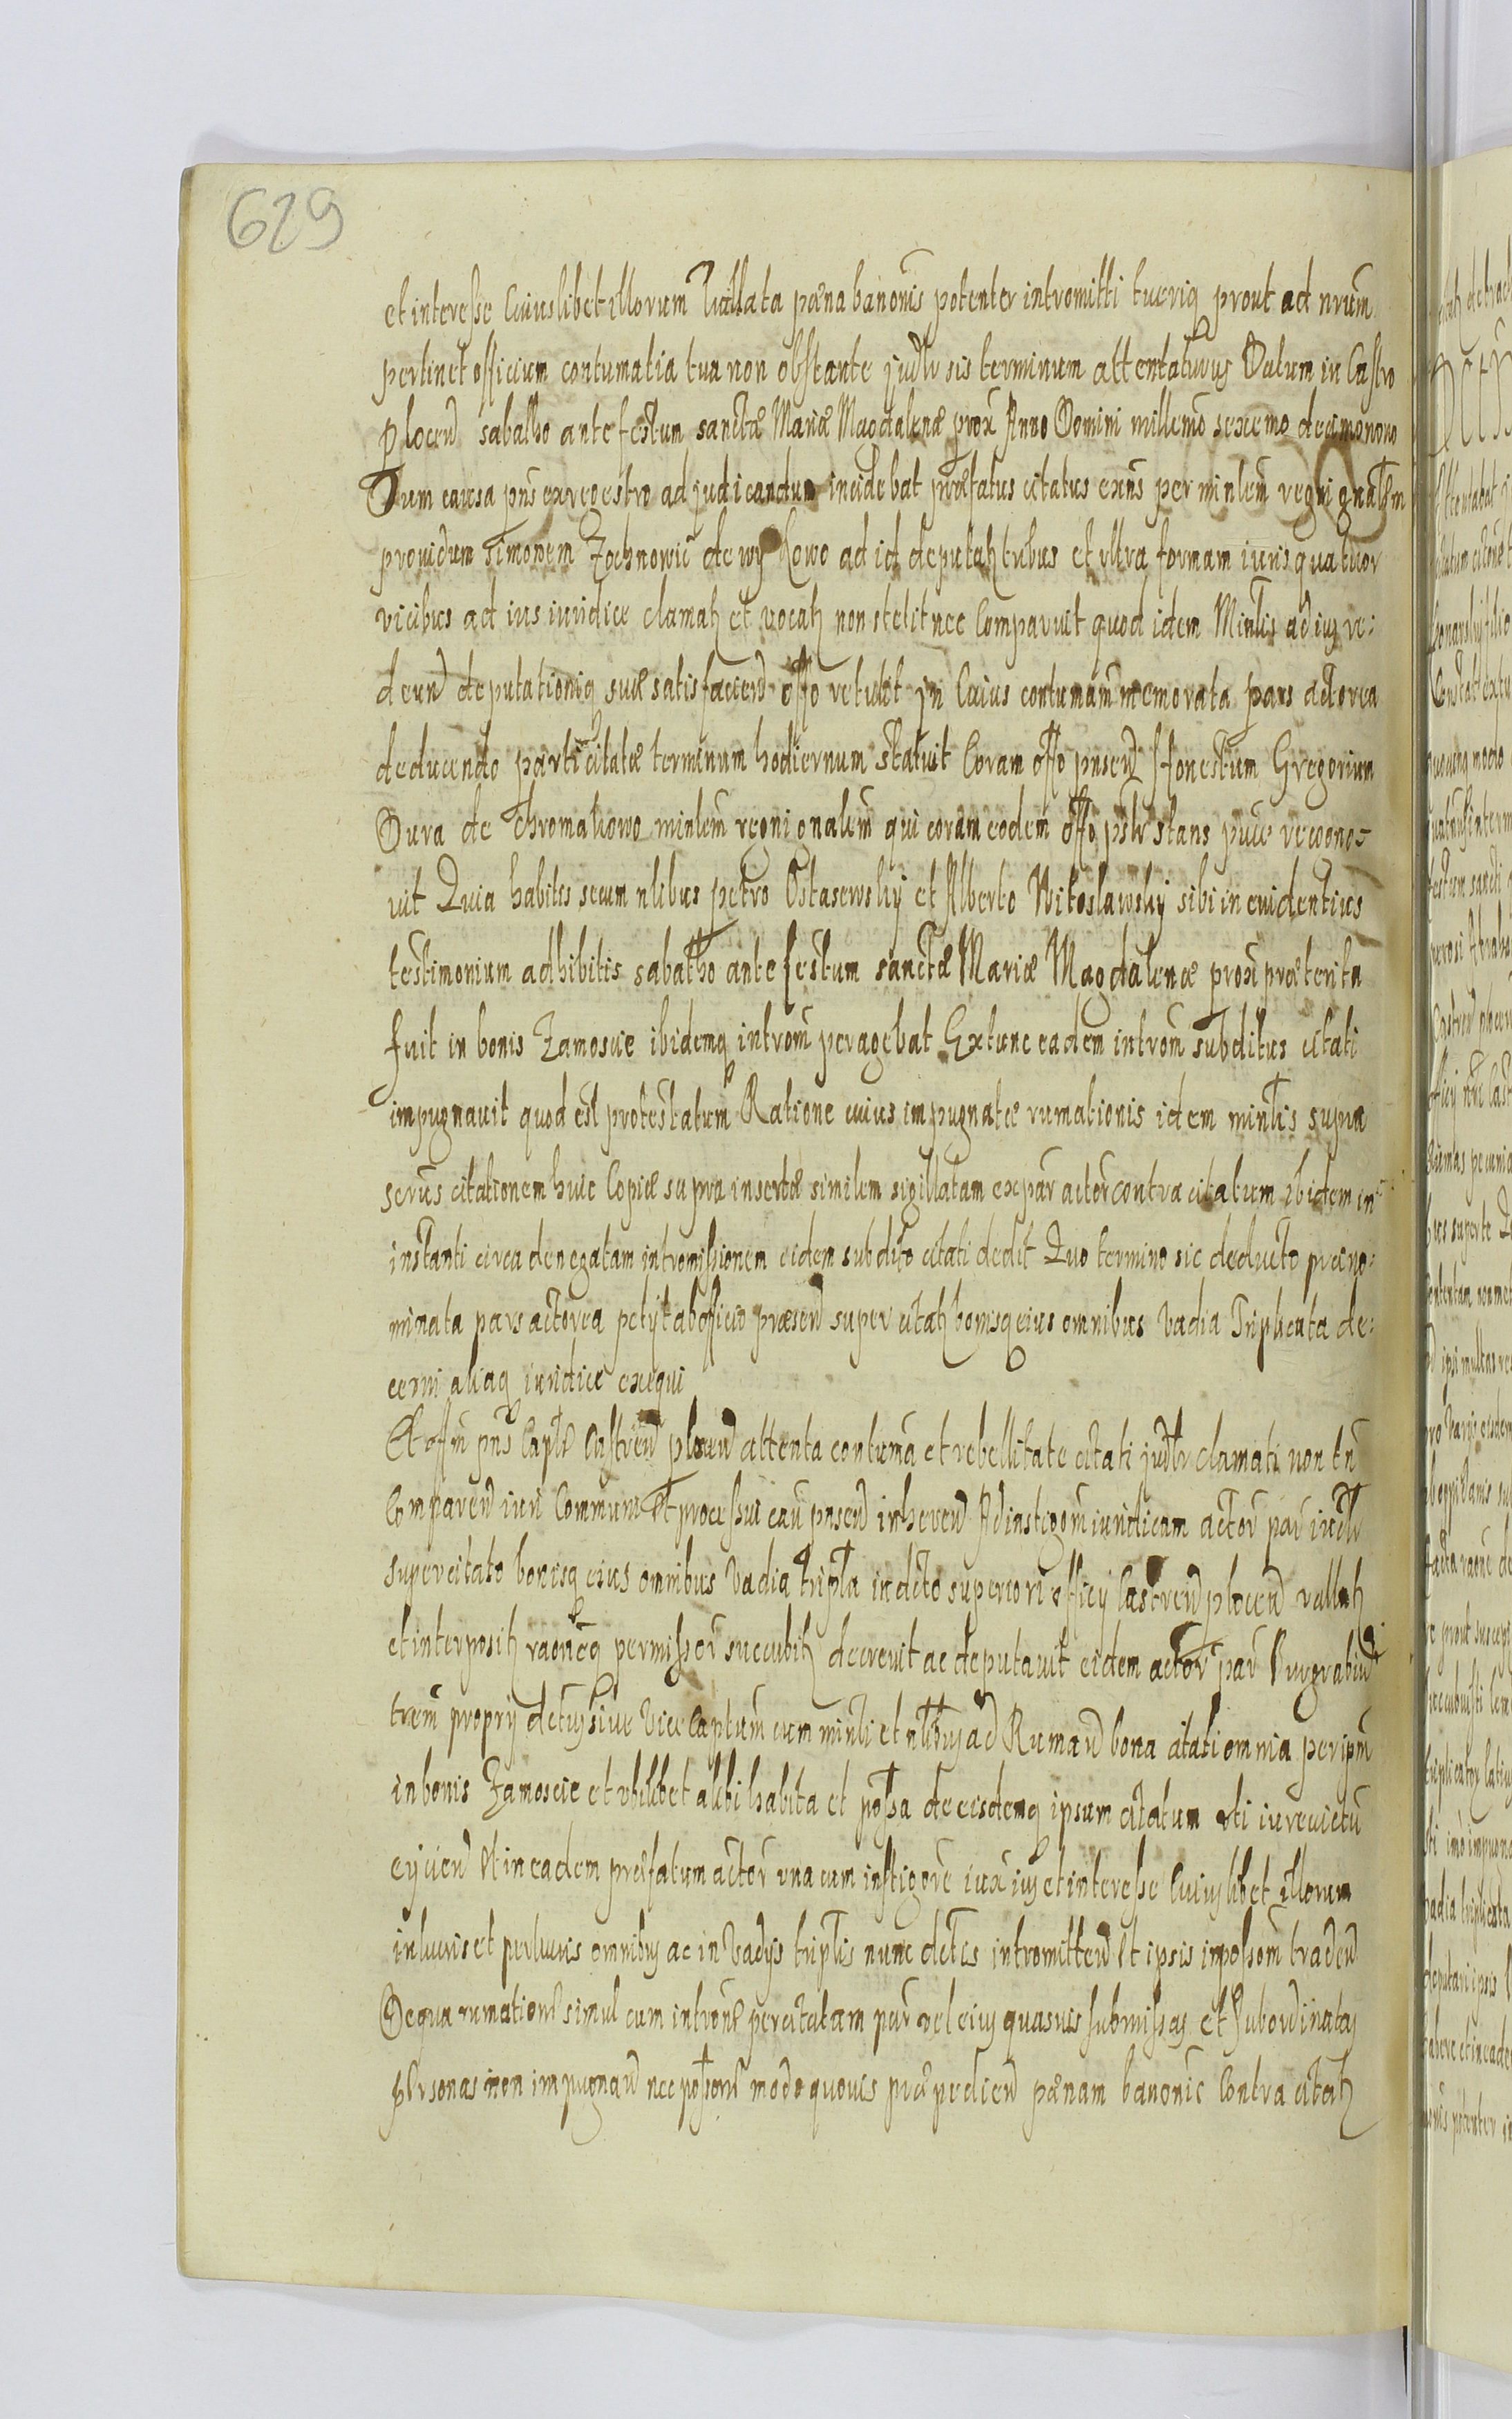 629
et interesse Cuiuslibet illorum Vallata pœna banonis potenter intromitti tueriq prout ad nrum
pertinet officium contumatia tua non obstante judlr sis terminum attentaturus Datum in Castro
Plocen sabatho ante festum sanctæ Mariæ Magdalenæ prox Anno Domini millemo sexcmo decimonono
Dum causa pns ex regestro ad judicandum incidebat præfatus citatus exns per minlem regni gnalem
prouidum Simonem Zochnowic de wy kowo ad id deputatz tribus et vltra formam iuris quatuor
vicibus ad ius iuridice clamatz et vocatz non stetit nec Comparuit quod idem Minlis ad ius re:
deun deputationiq suæ satisfacien offo retulit In Cuius contumam memorata pars actorea
deducendo parti citatæ terminum hodiernum statuit Coram offo pnsen Honestum Gregorium
Dura de Chromakowo minlem regni gnalem qui coram eodem offo pslr stans puce recogno-
uit Quia habitis secum nlibus petro Ostasewsky et Alberto Nitoslawsky sibi in euidentius
testimonium adhibitis sabatho ante festum sanctæ Mariæ Magdalenæ prox præterita
fuit in bonis Zamoscie ibidemq introm peragebat Extunc eadem introm subditus citati
impugnauit quod est protestatum Ratione cuius impugnatæ rumationis idem minlis supra
scrius citationem huic Copiæ supra insertæ similem sigillatam ex par actor contra citatum ibidem in
instanti circa denegatam intromissionem eidem subdito citati dedit Quo termino sic deducto præno:
minata pars actorea petyt ab officio præsen super citatz bonisq eius omnibus Vadia Triplicata de:
cerni aliaq iuridice exequi
Et offm pns Capte Castren plocen attenta contuma et rebellitate citati judlr clamati non tn
Comparen iuri Communi Et processui cau pnsen inheren Ad instigom iuridicam actor par iudlr
super citato bonisq eius omnibus Vadia tripla indicto superiori officy Castren plocen vallatz
et interpositz raoneq permissor succubitz decreuit ac deputauit eidem actor par Burgrabiu
trem propry detus siue Vice Captum cum minli et nlibus ad Ruman bona citati omnia per ipm
in bonis Zamoscie et vbilibet alibi habita et possa de eisdemq ipsum citatum vti iure victu
eycien Et in eadem præfatum actor vna cum instigore iux ius et interesse Cuiuslibet illorum
in lucris et perlucris omnibus ac in Vadys triplis nunc dctis intromitten Et ipsis in possom traden
De qua rumatione simul cum introne per citatam par vel eius quasuis submissas et Subordinatas
personas non impugnan nec possone modo quouis præpedien pænam banonis Contra citatz